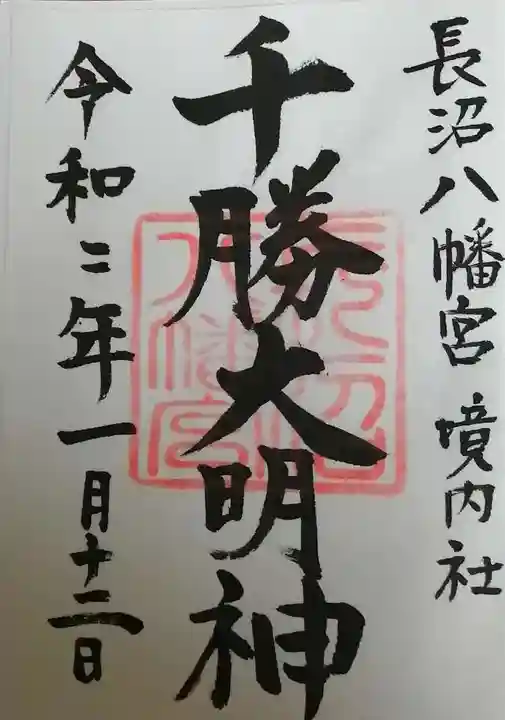 長沼八幡宮 境内社
千勝大明神
令和二年一月十二日
長沼八幡宮